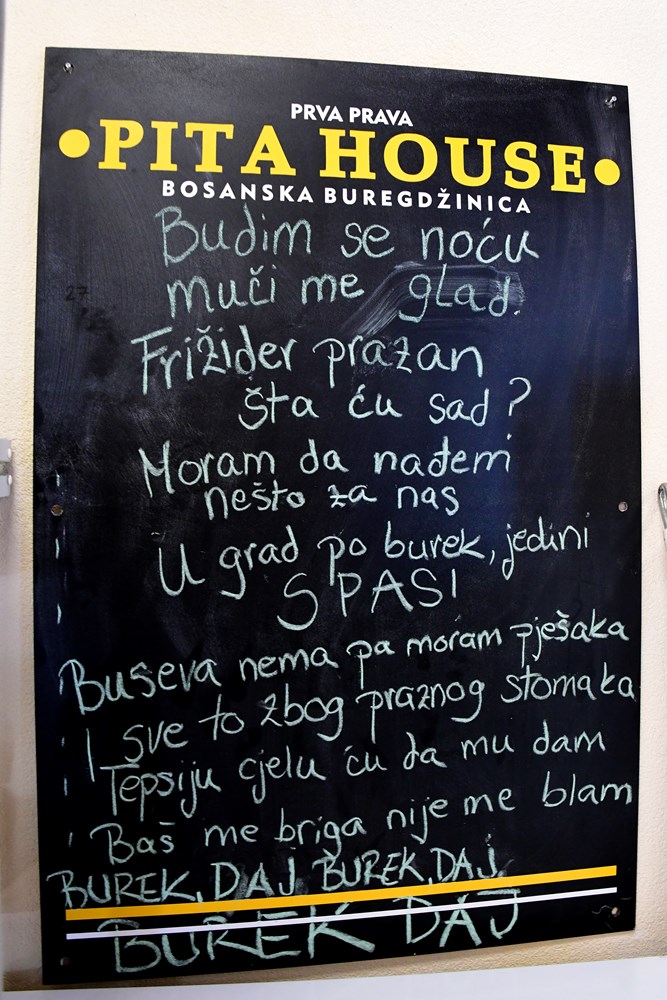 PRVA PRAVA
•PITA HOUSE•
BOSANSKA BUREGDŽINICA
Budim se noću
muči me glad.
Frižider prazan
šta ću sad?
Moram da nađem
nešto za nas
U grad po burek, jedini
SPAS!
Buseva nema pa moram pješaka
I sve to zbog praznog stomaka
Tepsiju cjelu ću da mu dam
Baš me briga nije me blam
BUREK, DAJ BUREK, DAJ,
BUREK DAJ